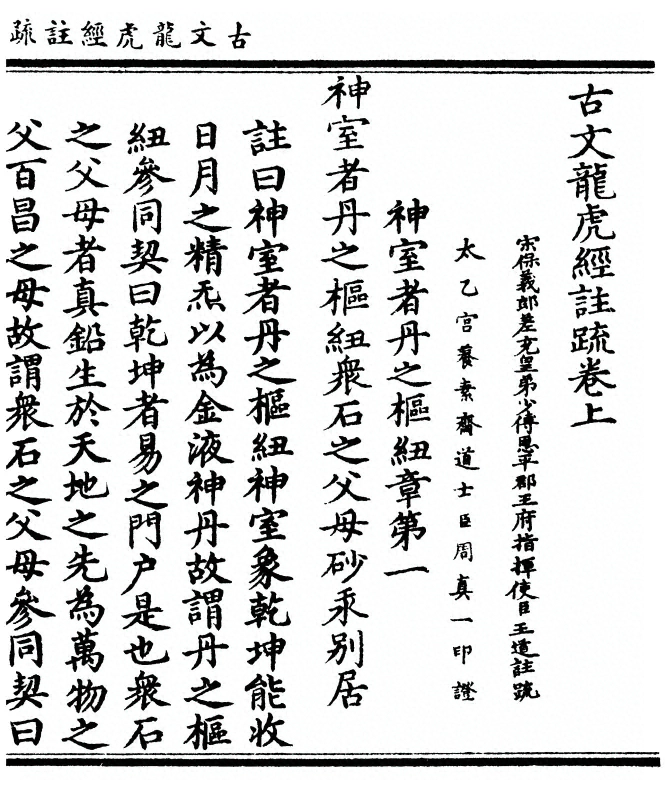 古文龍虎經註疏
古文龍虎經註疏卷上
宋保義郎差充皇弟少傅恩平郡王府指揮使臣王道註疏
太乙宮養素齋道士臣周真一印證
神室者丹之樞紐章第一
神室者丹之樞紐衆石之父母砂汞别居
註曰神室者丹之樞紐神室象乾坤能收
日月之精炁以為金液神丹故謂丹之樞
紐參同契曰乾坤者易之門户是也衆石
之父母者真鉛生於天地之先為萬物之
父百昌之母故謂衆石之父母參同契曰